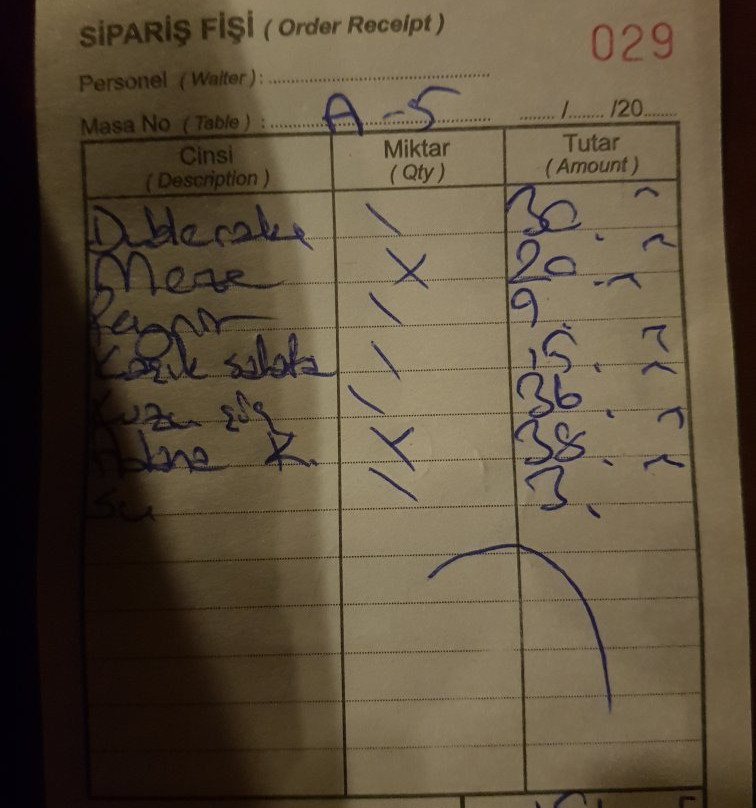 SİPARİŞ FİŞİ ( Order Receipt )
029
Personel ( Waiter ) :
Masa No ( Table ) : A-5 ....../....../20......
Cinsi ( Description ) Miktar ( Qty ) Tutar ( Amount )
Duble rakı / 30.
Meze X 20.
Peynir / 9.
Kaşık salata / 15.
Kuzu şiş / 36.
Adana K. X 38.
Su / 3.